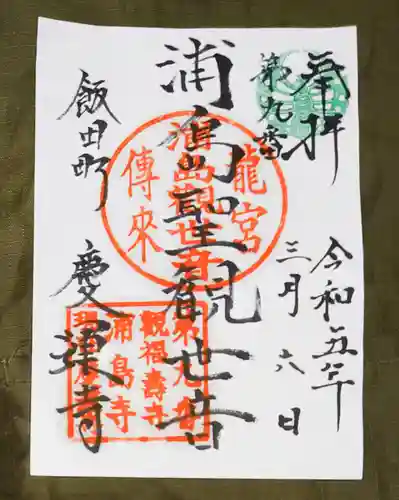 奉拝
第九番
令和五年
三月六日
浦島聖観世音
飯田町
慶蓮寺
龍宮
浦島観世音
傳来
観福壽寺
浦島寺